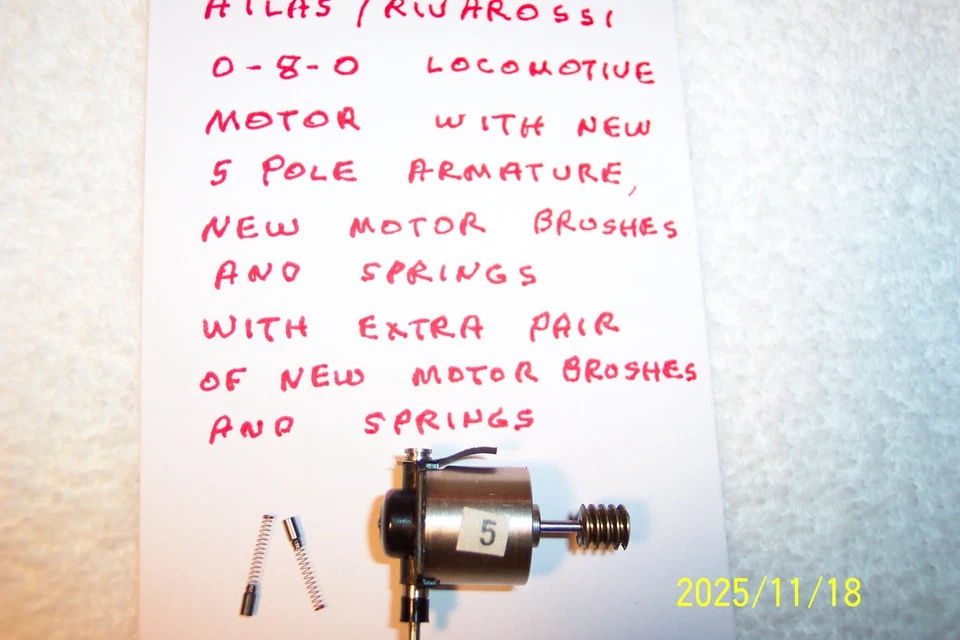 ATLAS / RIVAROSSI
0-8-0 LOCOMOTIVE
MOTOR WITH NEW
5 POLE ARMATURE,
NEW MOTOR BRUSHES
AND SPRINGS
WITH EXTRA PAIR
OF NEW MOTOR BROSHES
AND SPRINGS
5
2025/11/18